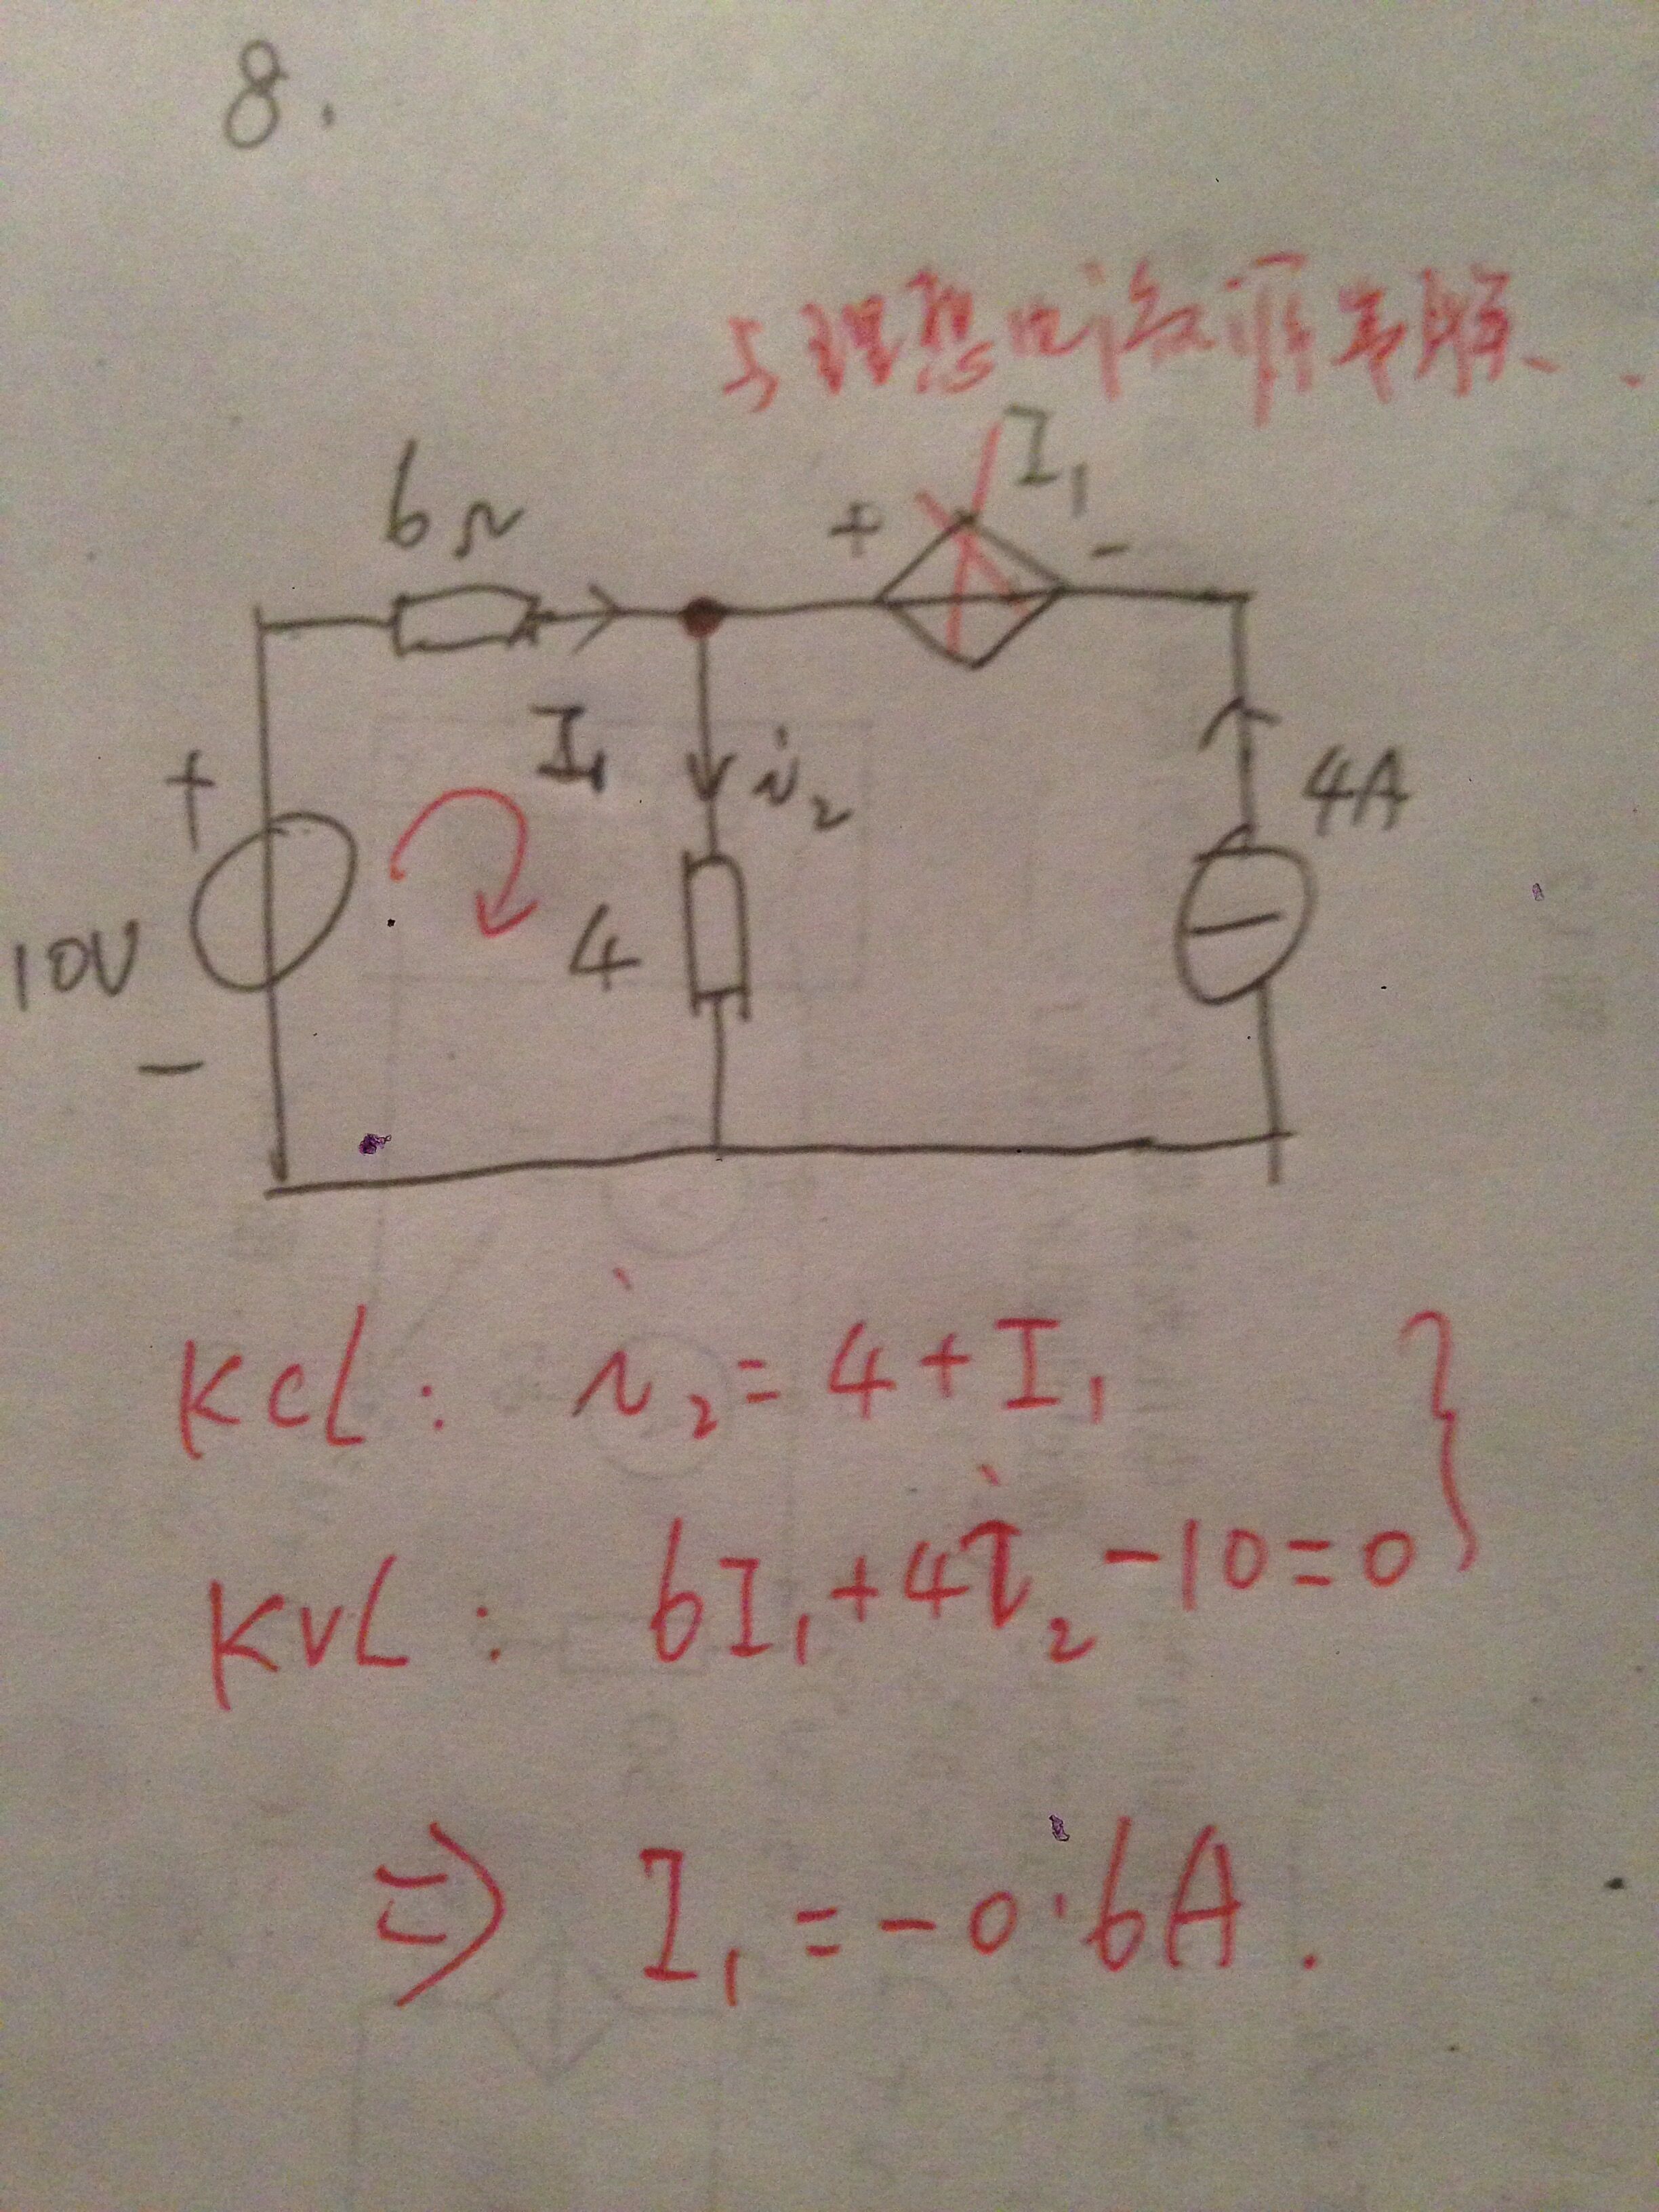 8.
与理想电流源串联.
6Ω
+
I₁
-
I₁
i₂
4A
+
10V
4
-
KCL: i₂=4+I₁
KVL: 6I₁+4i₂-10=0
⇒ I₁=-0.6A.